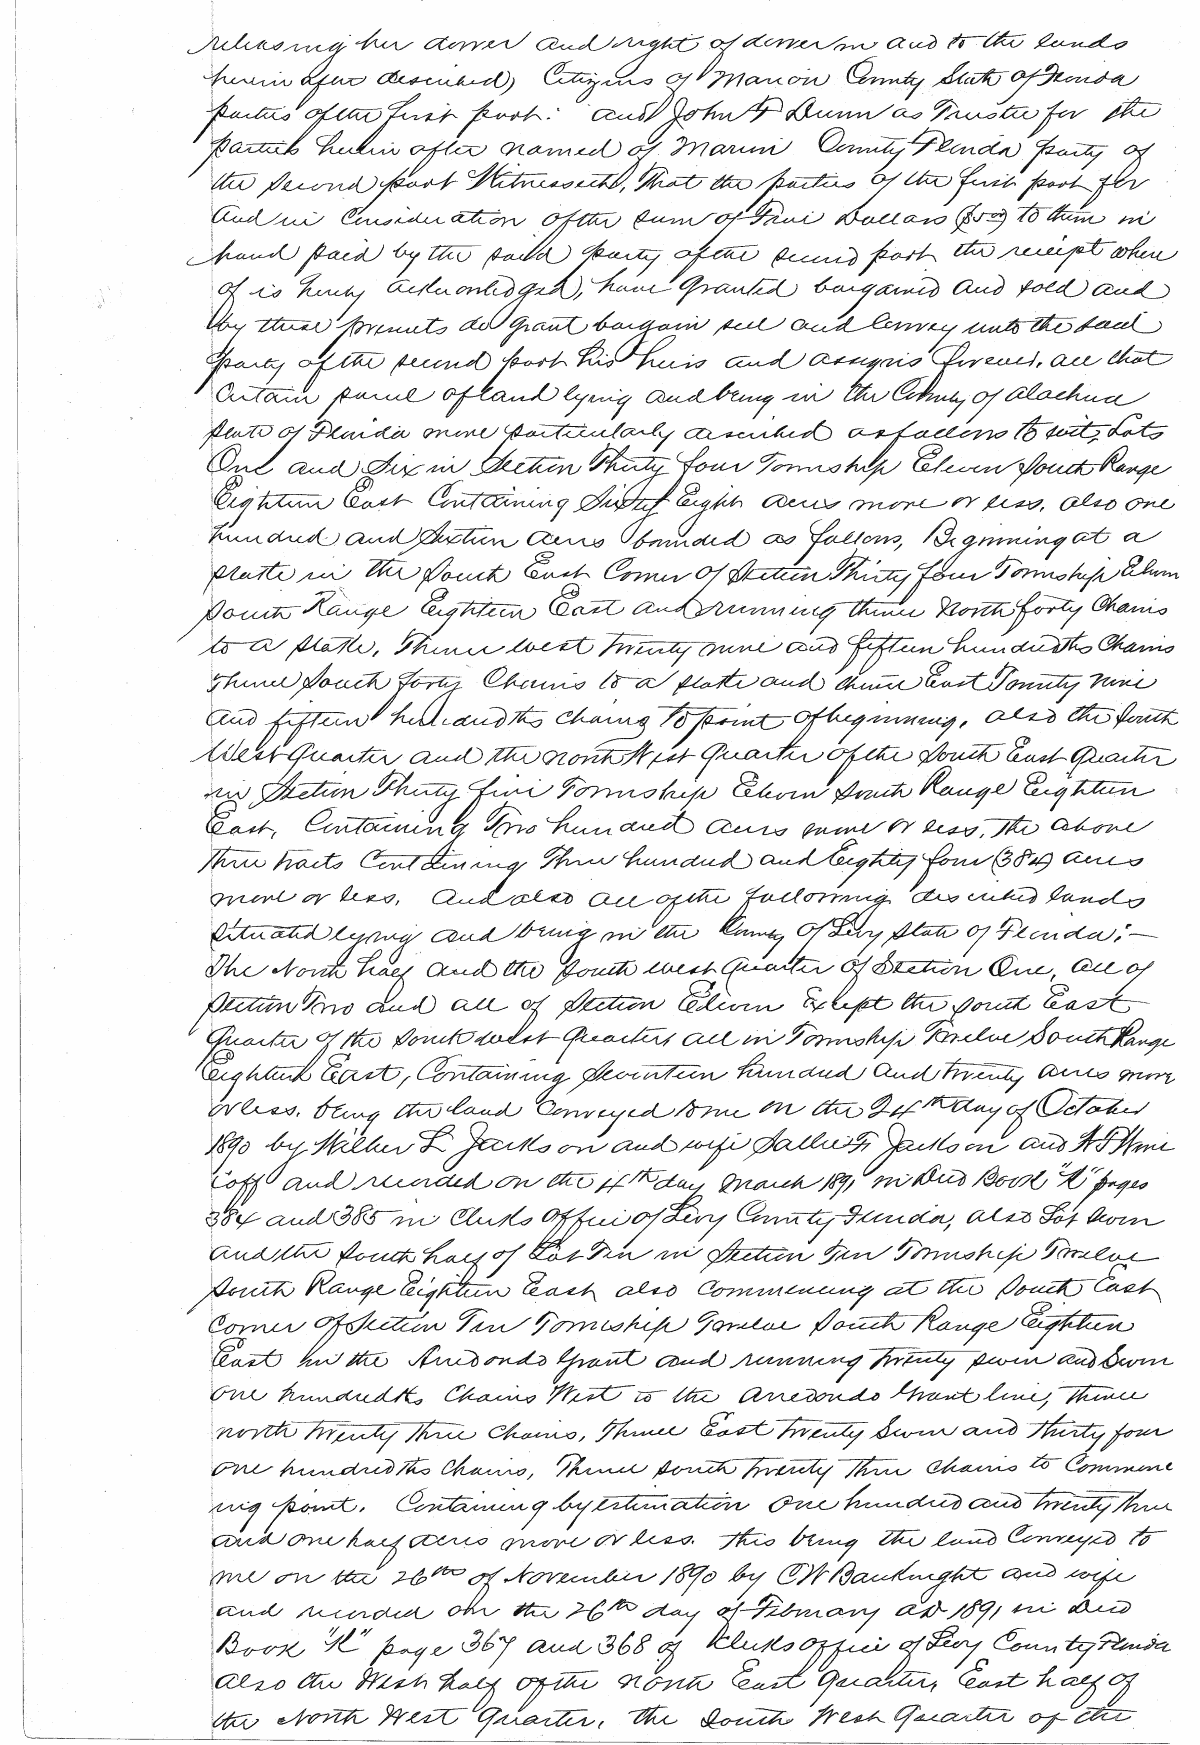 releasing her dower and right of dower in and to the lands
herein after described, Citizens of Marion County State of Florida
parties of the first part: and John F Dunn as Trustee for the
parties herein after named of Marion County Florida party of
the second part Witnesseth, That the parties of the first part for
and in Consideration of the sum of Five Dollars ($5.00) to them in
hand paid by the said party of the second part the receipt where
of is hereby acknowledged, have granted bargained and sold and
by these presents do grant bargain sell and Convey unto the said
party of the second part his heirs and assigns forever, all that
Certain parcel of land lying and being in the County of Alachua
State of Florida more particularly described as follows to wit, Lots
One and Six in Section Thirty four Township Eleven South Range
Eighteen East Containing Sixty Eight acres more or less, also one
hundred and Sixteen acres bounded as follows, Beginning at a
stake in the South East Corner of Section Thirty four Township Eleven
South Range Eighteen East and running thence North forty Chains
to a stake, Thence West twenty nine and fifteen hundredths Chains
Thence South forty Chains to a stake and thence East Twenty nine
and fifteen hundredths chains to point of beginning, also the South
West Quarter and the North West Quarter of the South East Quarter
in Section Thirty five Township Eleven South Range Eighteen
East, Containing Two hundred acres more or less, The above
three tracts Containing Three hundred and Eighty four (384) acres
more or less. And also all of the following described lands
situated lying and being in the County of Levy State of Florida:—
The North half and the South West Quarter of Section One, all of
Section Two and all of Section Eleven Except the South East
Quarter of the South West Quarter, all in Township Twelve South Range
Eighteen East, Containing Seventeen hundred and twenty acres more
or less. being the land Conveyed to me on the 24th day of October
1890 by Wilber L Jackson and wife Sallie F Jackson and
and recorded on the 4th day March 1891 in Deed Book "K" pages
384 and 385 in Clerks Office of Levy County Florida, also Lot Seven
and the South half of Lot Ten in Section Ten Township Twelve
South Range Eighteen East also Commencing at the South East
Corner of Section Ten Township Twelve South Range Eighteen
East in the Arredondo Grant and running twenty seven and Seven
one hundredths Chains West to the Arredondo Grant line, thence
north twenty three Chains, Thence East twenty Seven and thirty four
one hundredths Chains, Thence South twenty three Chains to Commenc
ing point. Containing by estimation one hundred and twenty three
and one half acres more or less. This being the land Conveyed to
me on the 26th of November 1890 by C W Bauknight and wife
and recorded on the 26th day of February AD 1891 in Deed
Book "K" page 367 and 368 of Clerks office of Levy County Florida
Also the West half of the North East Quarter, East half of
the North West Quarter, the South West Quarter of the